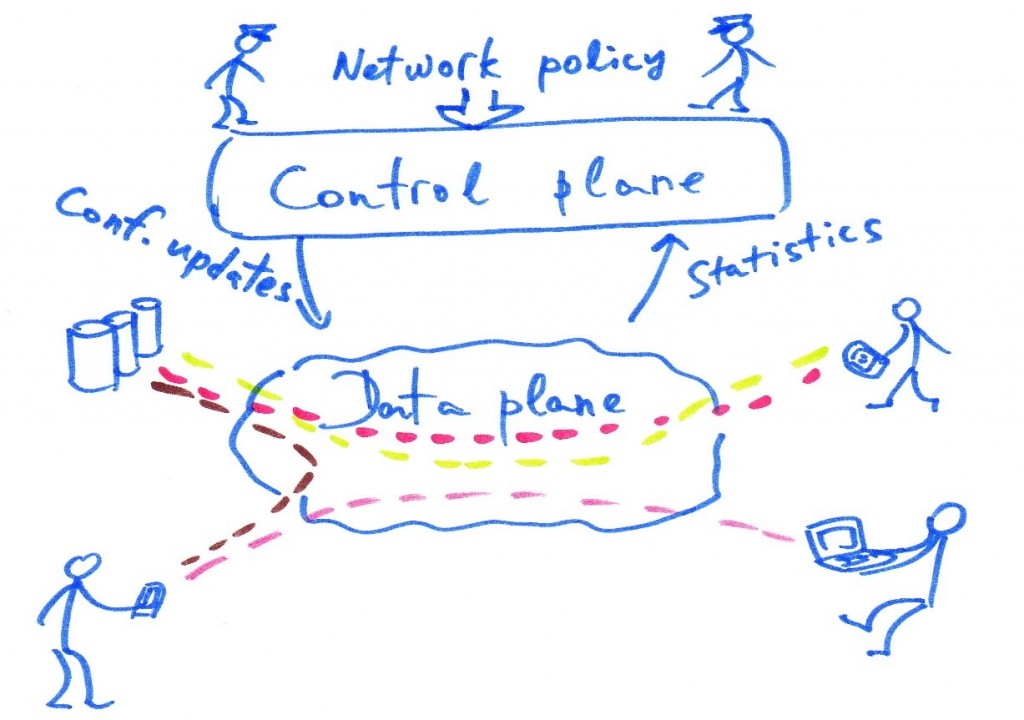 Network policy
Control plane
Conf. updates
Statistics
Data plane